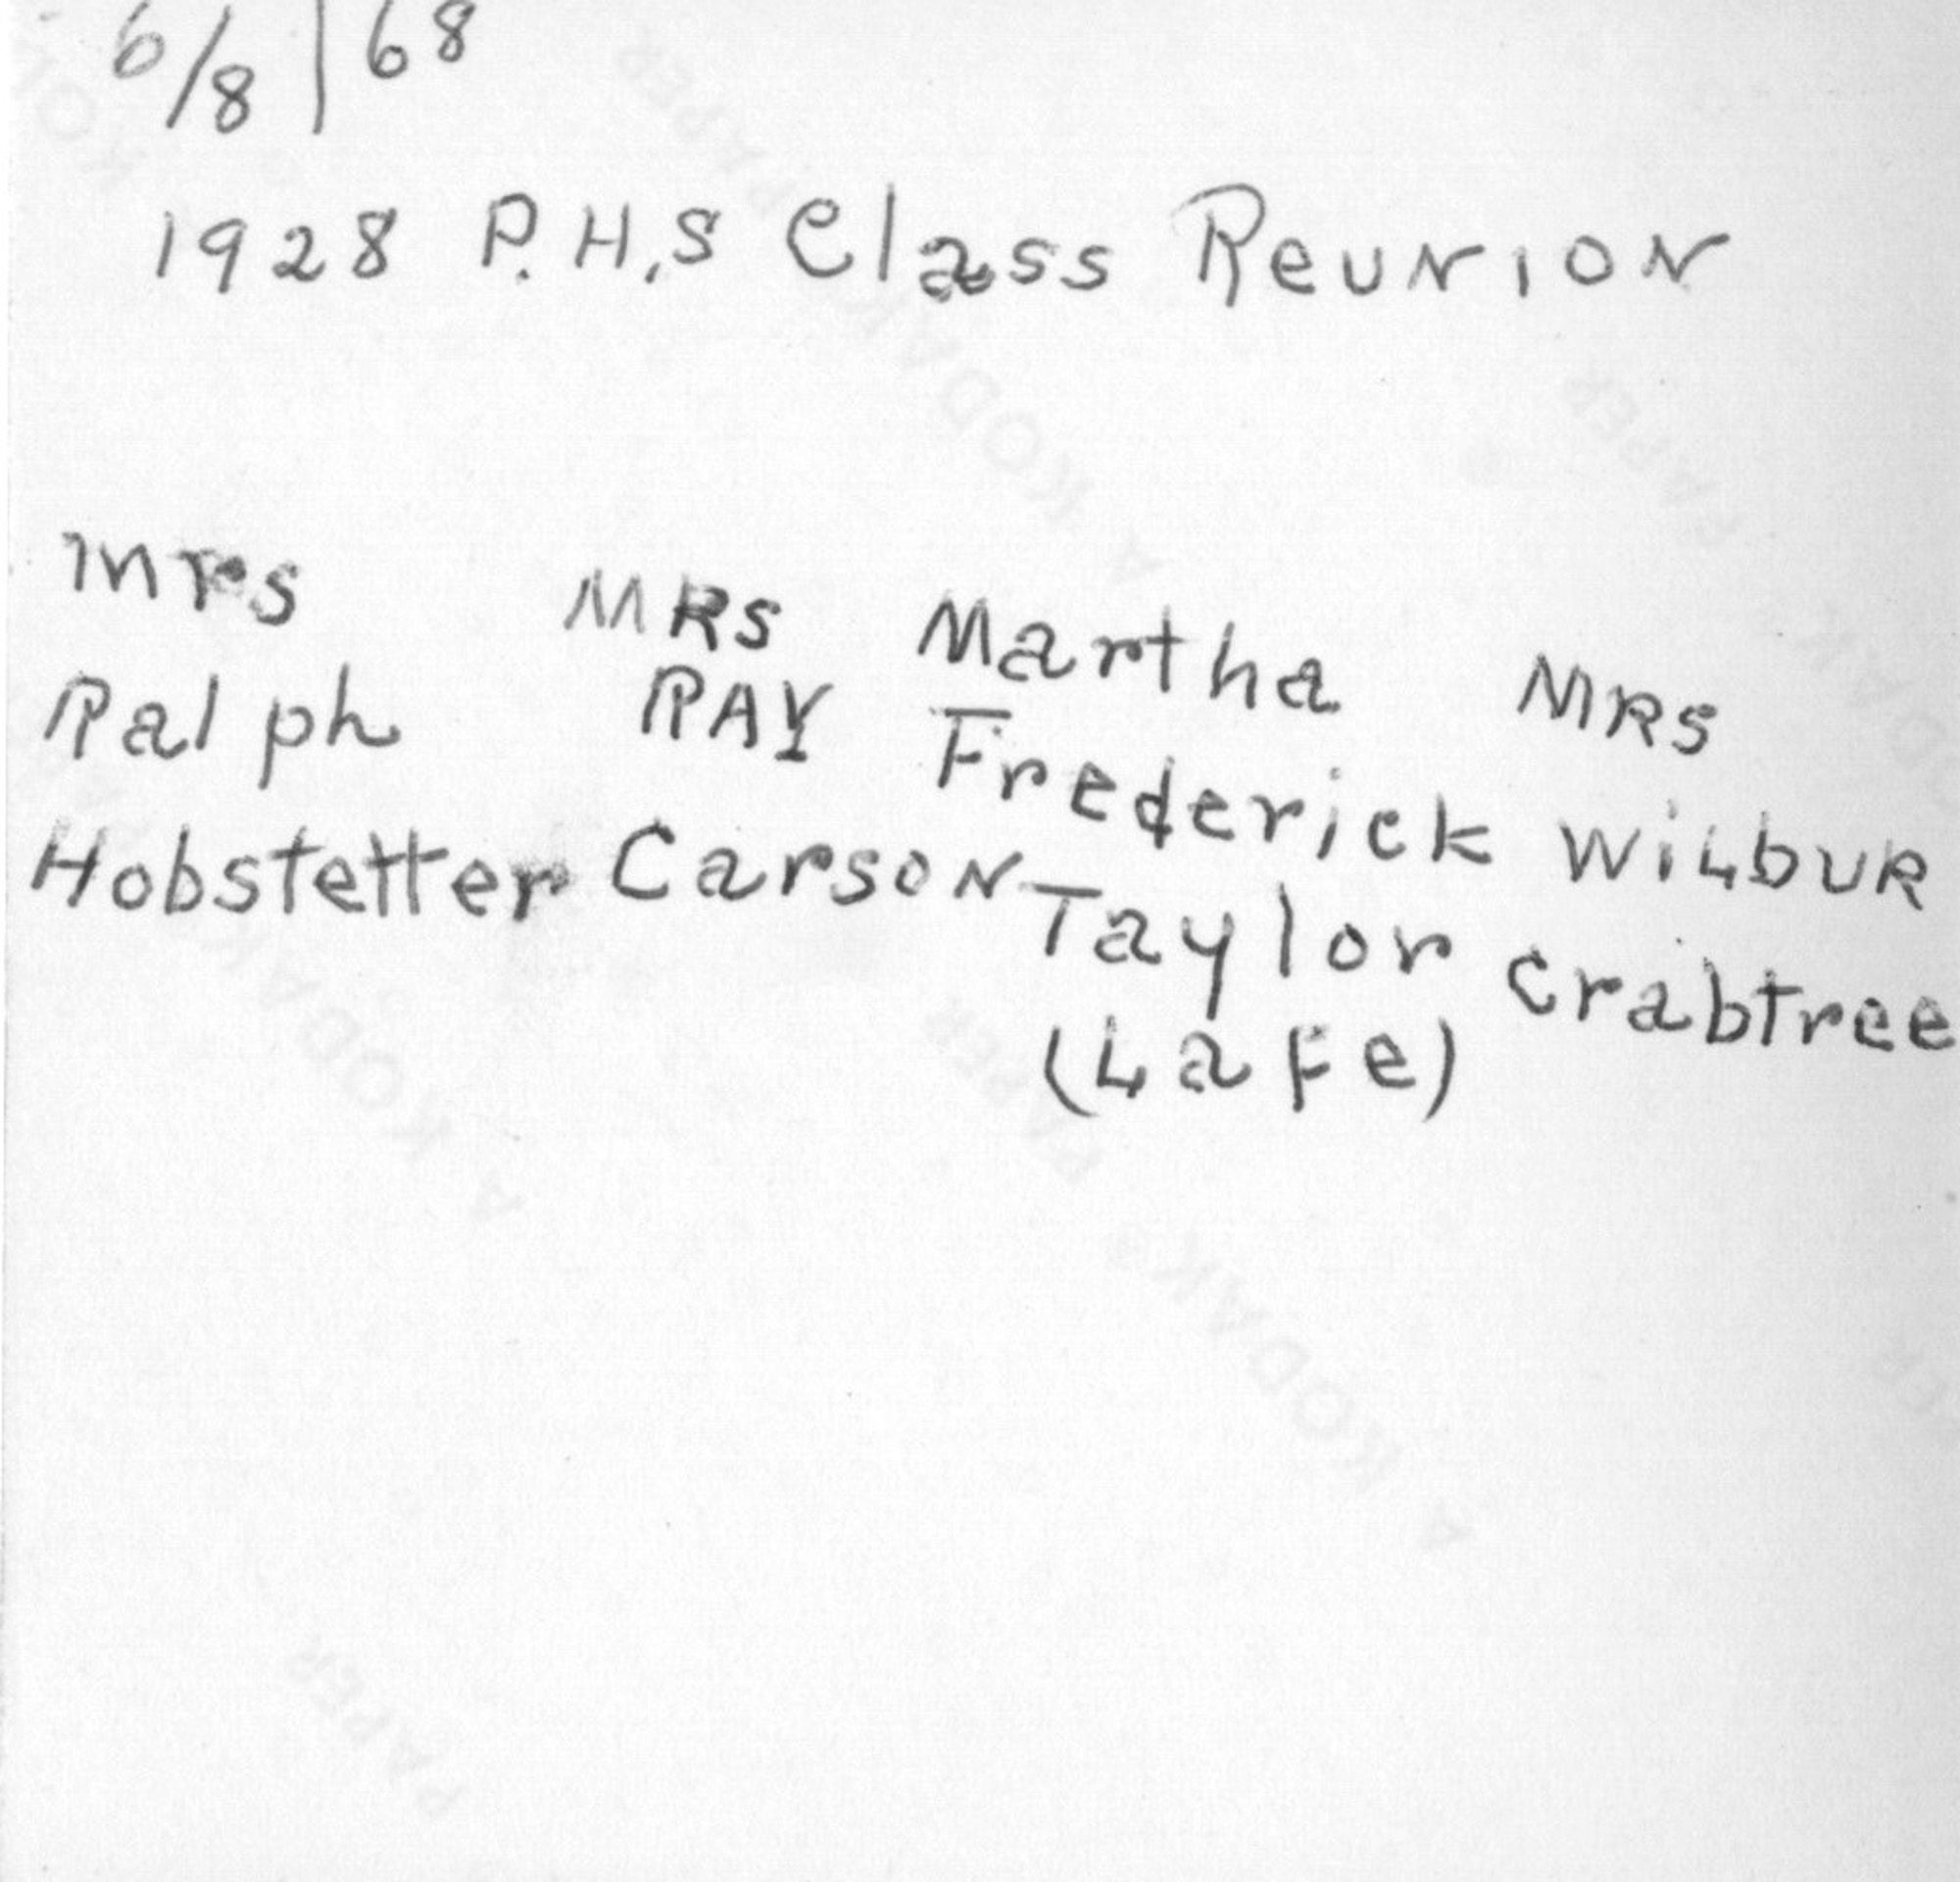 6/8/68
1928 P.H.S Class Reunion
Mrs
Ralph
Hobstetter
MRS
RAY
Carson
Martha
Frederick
Taylor
(LaFe)
MRS
WiLbUR
Crabtree
A KODAK® PAPER
A KODAK® PAPER
A KODAK® PAPER